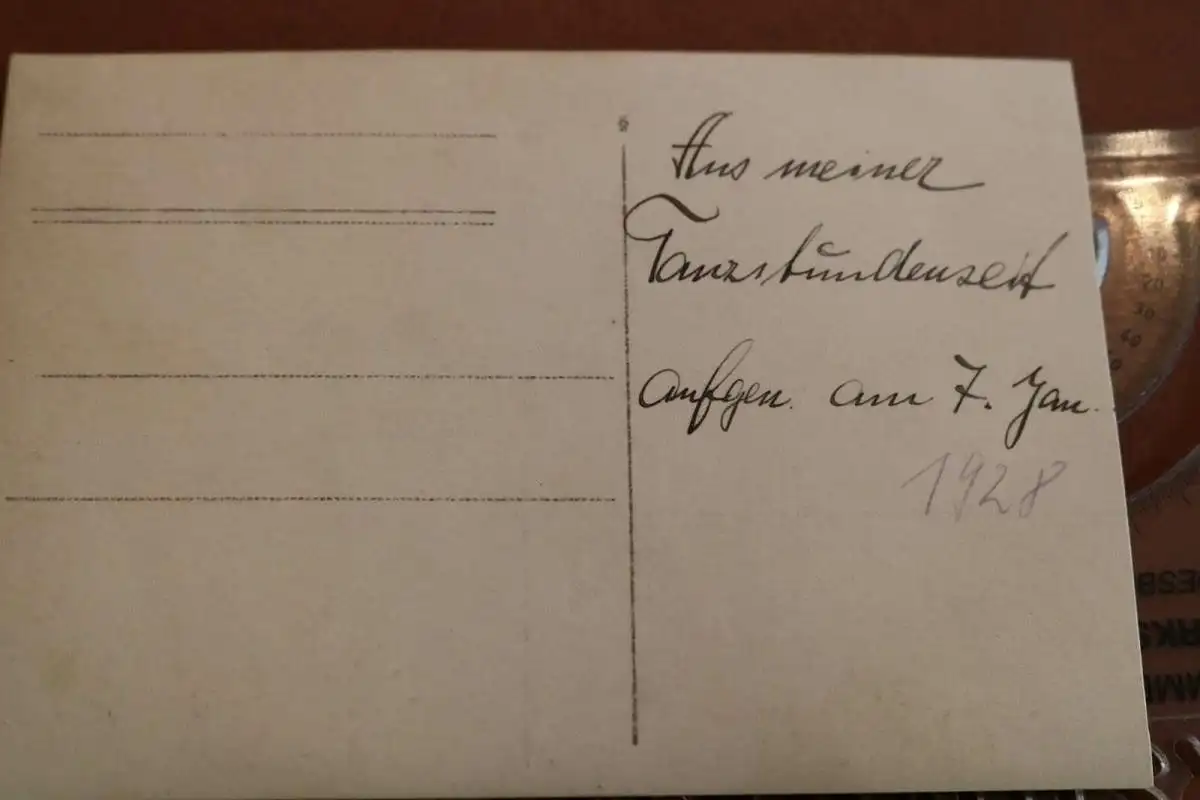 Aus meiner
Tanzstundenzeit
aufgen. am 7. Jan.
1928
10
20
30
40